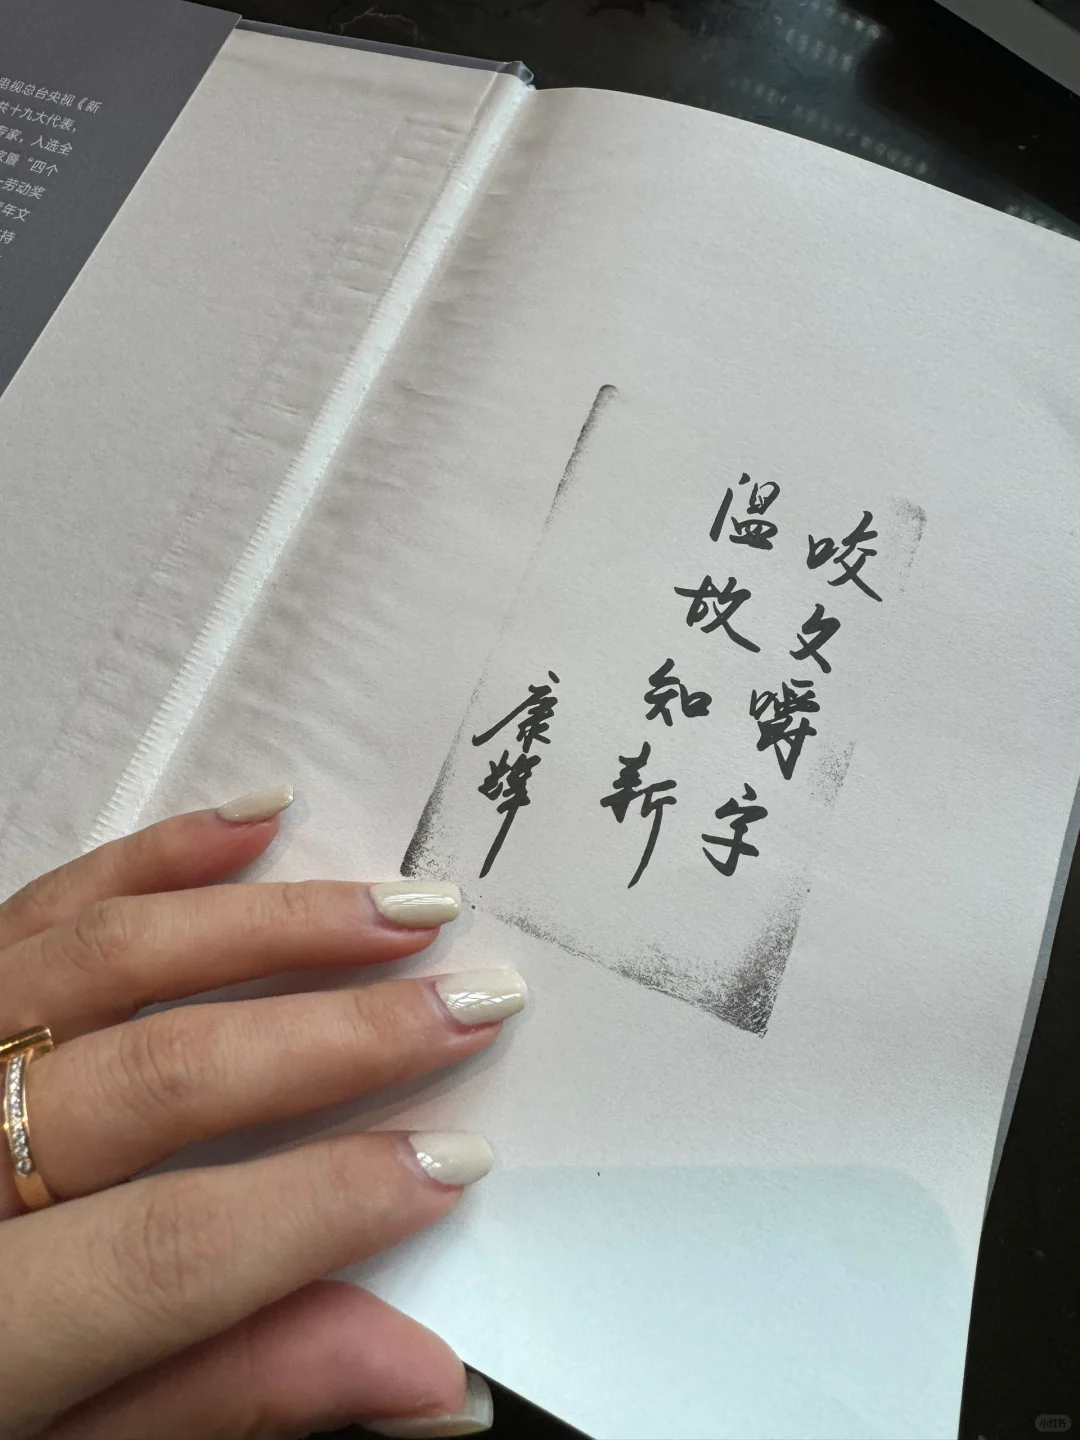 电视总台央视《新
共十九大代表，
专家，入选全
家暨“四个
劳动奖
年文
持
咬文嚼字
温故知新
康辉
小红书